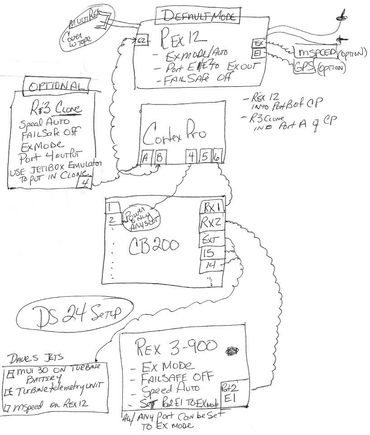 DEFAULT MODE
REX 12
- EX MODE/AUTO
- PORT E1 TO EX OUT
- FAILSAFE OFF
G2
EX
E1
MSPEED (OPTION)
GPS (OPTION)
- REX 12
INTO PORT B OF CP
- R3 CLONE
INTO PORT A OF CP
OPTIONAL
R3 CLONE
SPEED AUTO
FAILSAFE OFF
EX MODE
PORT 4 OUTPUT
USE JETIBOX EMULATOR
TO PUT IN CLONE
4
CORTEX PRO
A B 4 5 6
1
2
CB200
RX1
RX2
EXT
15
14
DS 24 SETUP
DAVE'S JETS
MUI 30 ON TURBINE
BATTERY
TURBINE TELEMETRY UNIT
MSPEED ON REX12
REX 3-900
- EX MODE
- FAILSAFE OFF
- SPEED AUTO
- SET PORT E1 TO EX MODE
E1
ANY PORT CAN BE SET
TO EX MODE